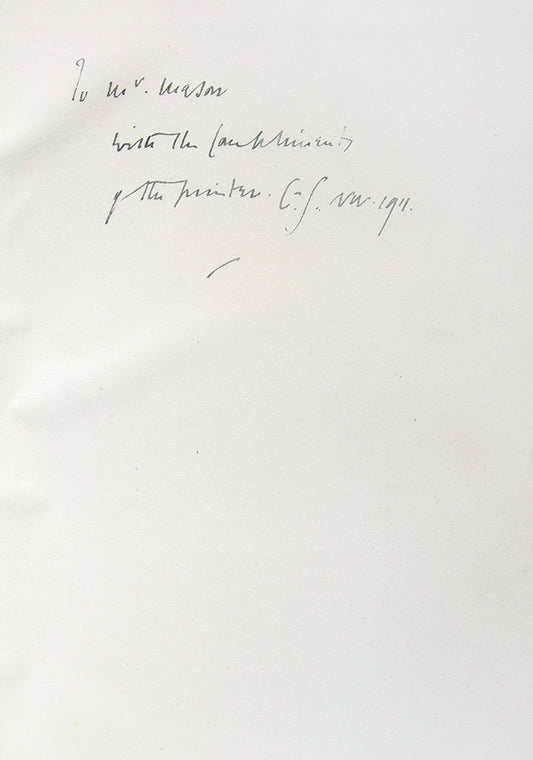 To Mr. Mason
with the Compliments
of the printer. C-S. Nov. 1911.